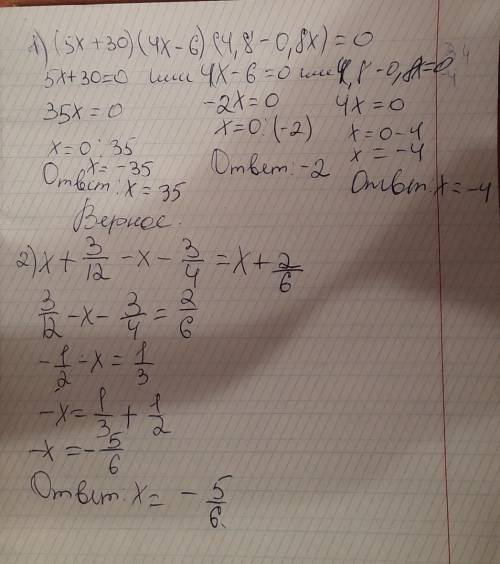 1) (5x+30)(4x-6)(4,8-0,8x)=0
5x+30=0 или 4x-6=0 или 4,8-0,8x=0
35x=0
-2x=0
4x=0
x=0:35
x=0:(-2)
x=0-4
x=-35
x=-4
Ответ: x=35
Ответ: -2
Ответ: x=-4
2) x+3/12-x-3/4=x+2/6
3/12-x-3/4=2/6
-1/2-x=1/3
-x=1/3+1/2
-x=-5/6
Ответ: x=-5/6